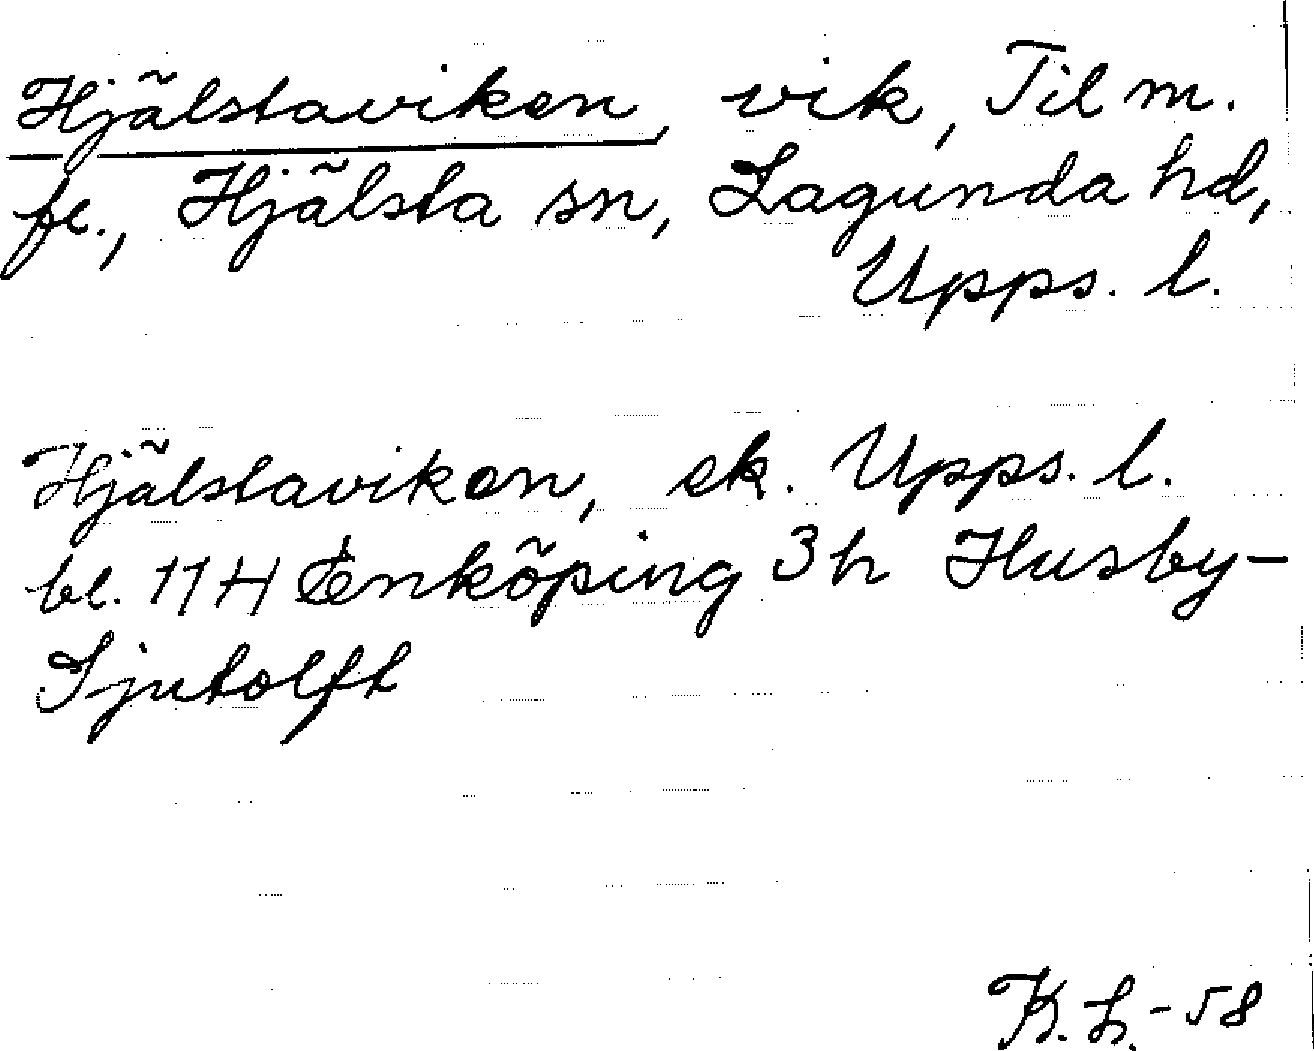 Hjälstaviken, vik, Til m.
fl., Hjälsta sn, Lagunda hd,
Upps. l.
Hjälstaviken, ek. Upps. l.
bl. 11H Enköping 3h Husby-
Sjutolft
K. L. -58